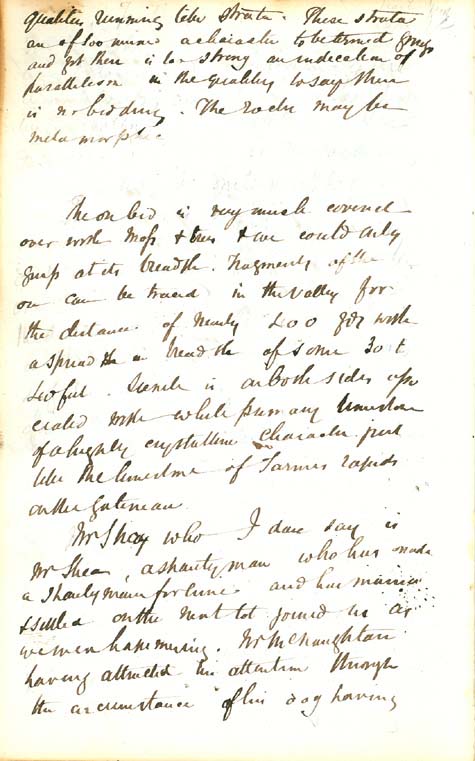 qualities running like strata. These strata
are of too minor a character to be termed gneiss
and yet there is too strong an indication of
parallelism in the quality to say there
is no bedding. The rocks may be
metamorphic

The ore bed is very much covered
over with moss & trees & we could only
guess at its breadth. Fragments of the
ore can be traced in the valley for
the distance of nearly 400 yds with
a spread the a breadth of some 30 t
40 feet. Sienite is on both sides asso
ciated with white primary limestone
of a highly crystalline character just
like the limestone of Farmers rapids
on the Gatineau
Mr Shay who I dare say is
Mr Shea, a shantyman who has made
a shantyman fortune and has married
& settled on the next lot joined us as
we were hammering. Mr McNaughtan
having attracted his attention through
the circumstance of his dog having